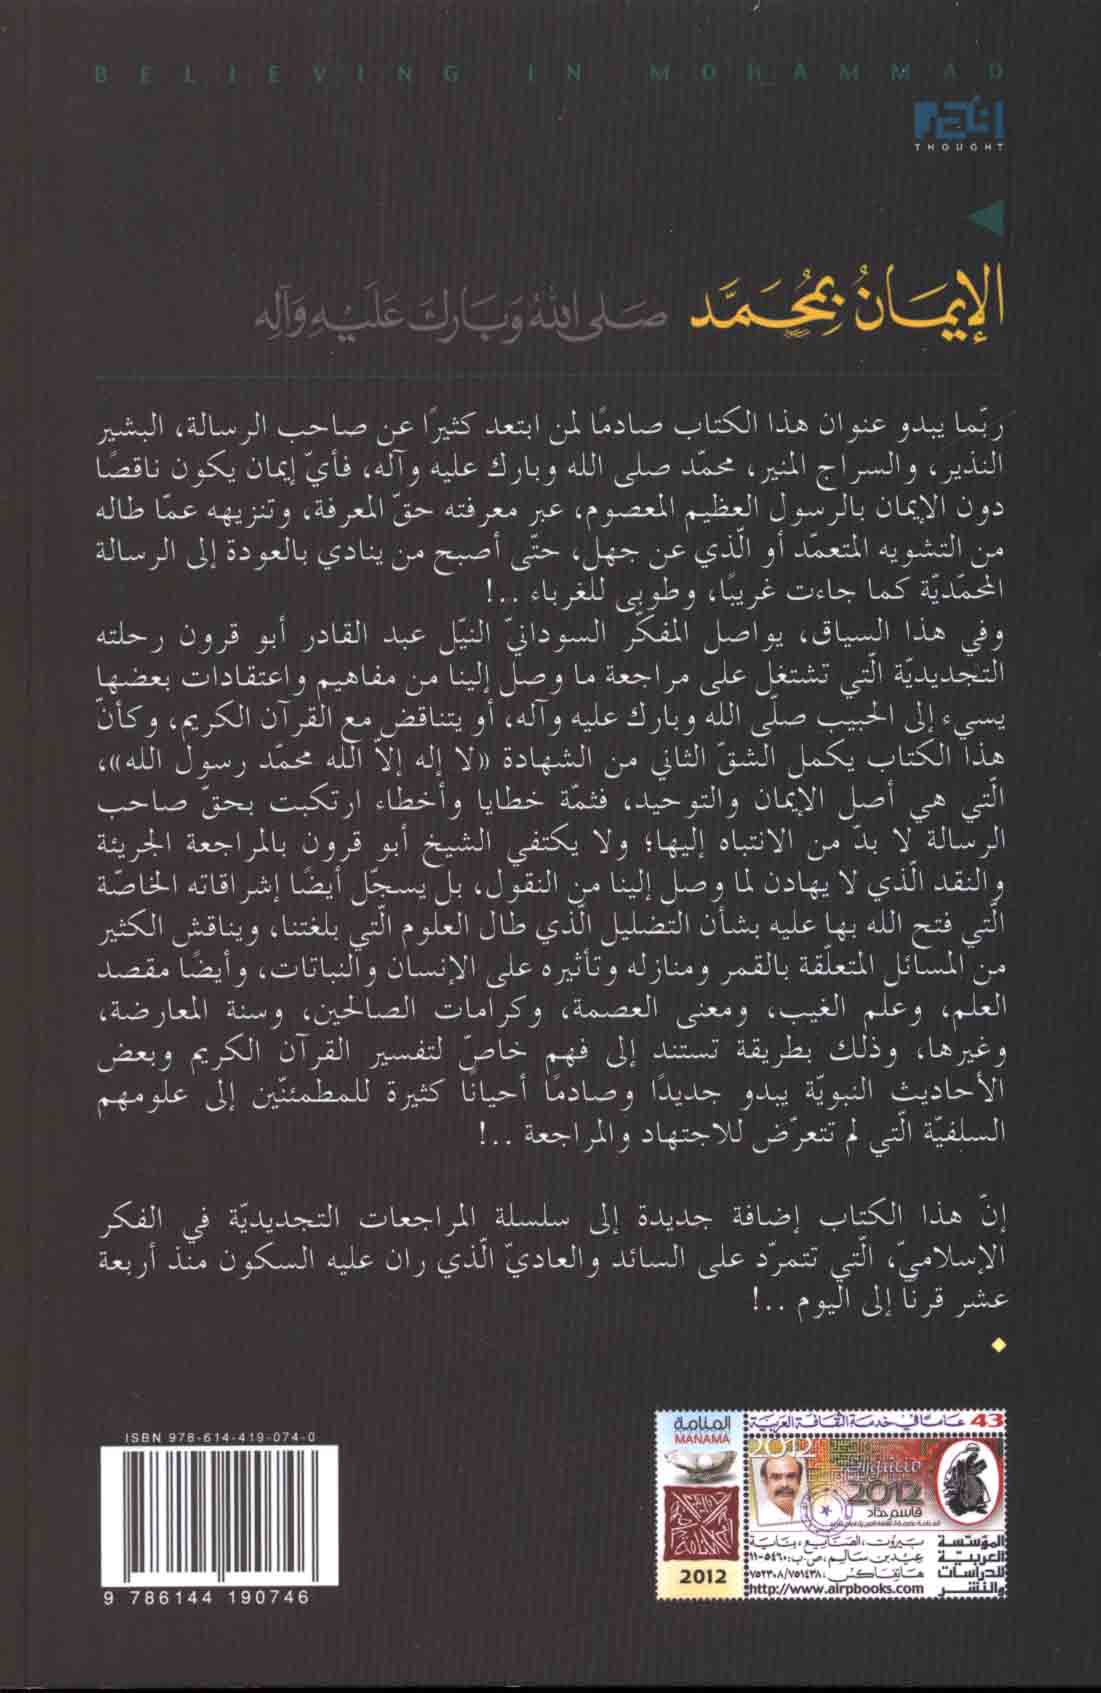 BELIEVING IN MOHAMMAD
THOUGHT
الإيمَانُ بمُحَمَّد صَلى اللهُ وَبَارَكَ عَلَيْهِ وَآلِهِ
ربّما يبدو عنوان هذا الكتاب صادمًا لمن ابتعد كثيرًا عن صاحب الرسالة، البشير
النذير، والسراج المنير، محمّد صلى الله وبارك عليه وآله، فأيّ إيمان يكون ناقصًا
دون الإيمان بالرسول العظيم المعصوم، عبر معرفته حقّ المعرفة، وتنزيهه عمّا طاله
من التشويه المتعمّد أو الّذي عن جهل، حتّى أصبح من ينادي بالعودة إلى الرسالة
المحمّديّة كما جاءت غريبًا، وطوبى للغرباء ..!
وفي هذا السياق، يواصل المفكّر السودانيّ النيّل عبد القادر أبو قرون رحلته
التجديديّة الّتي تشتغل على مراجعة ما وصل إلينا من مفاهيم واعتقادات بعضها
يسيء إلى الحبيب صلّى الله وبارك عليه وآله، أو يتناقض مع القرآن الكريم، وكأنّ
هذا الكتاب يكمل الشقّ الثاني من الشهادة «لا إله إلاّ الله محمّد رسول الله»،
الّتي هي أصل الإيمان والتوحيد، فثمّة خطايا وأخطاء ارتكبت بحقّ صاحب
الرسالة لا بدّ من الانتباه إليها؛ ولا يكتفي الشيخ أبو قرون بالمراجعة الجريئة
والنقد الّذي لا يهادن لما وصل إلينا من النقول، بل يسجّل أيضًا إشراقاته الخاصّة
الّتي فتح الله بها عليه بشأن التضليل الّذي طال العلوم الّتي بلغتنا، ويناقش الكثير
من المسائل المتعلّقة بالقمر ومنازله وتأثيره على الإنسان والنباتات، وأيضًا مقصد
العلم، وعلم الغيب، ومعنى العصمة، وكرامات الصالحين، وسنة المعارضة،
وغيرها، وذلك بطريقة تستند إلى فهم خاصّ لتفسير القرآن الكريم وبعض
الأحاديث النبويّة يبدو جديدًا وصادمًا أحيانًا كثيرة للمطمئنّين إلى علومهم
السلفيّة الّتي لم تتعرّض للاجتهاد والمراجعة ..!
إنّ هذا الكتاب إضافة جديدة إلى سلسلة المراجعات التجديديّة في الفكر
الإسلاميّ، الّتي تتمرّد على السائد والعاديّ الّذي ران عليه السكون منذ أربعة
عشر قرنًا إلى اليوم ..!
ISBN 978-614-419-074-0
9 786144 190746
43 عامًا في خدمة الثقافة العربية
المنامة
MANAMA
2012
2012
قاسم حداد
2012
المؤسّسة
العربية
للدراسات
والنشر
بيروت، الصنايع، بناية
عيد بن سالم، ص.ب: ٥٤٦٠-١١
هاتفاكس: ٧٥٢٣٠٨/٧٥١٤٣٨
http://www.airpbooks.com